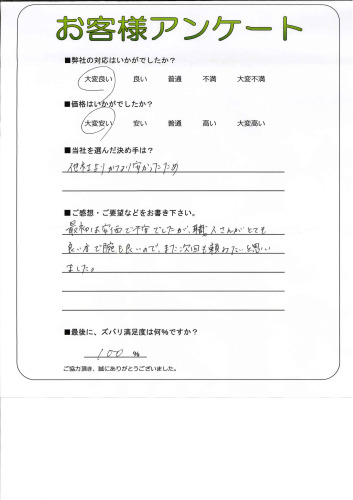 お客様アンケート
■弊社の対応はいかがでしたか?
大変良い 良い 普通 不満 大変不満
■価格はいかがでしたか?
大変安い 安い 普通 高い 大変高い
■当社を選んだ決め手は?
他社よりかなり安かったため
■ご感想・ご要望などをお書き下さい。
最初は安価で不安でしたが、職人さんがとても
良い方で腕も良いので、また次回も頼みたいと思い
ました。
■最後に、ズバリ満足度は何%ですか?
100 %
ご協力頂き、誠にありがとうございました。